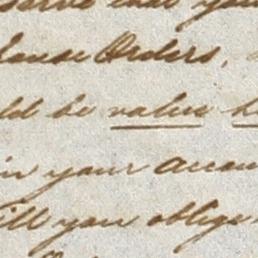 that you
Orders,
ld be value
in your accou
ill you oblige